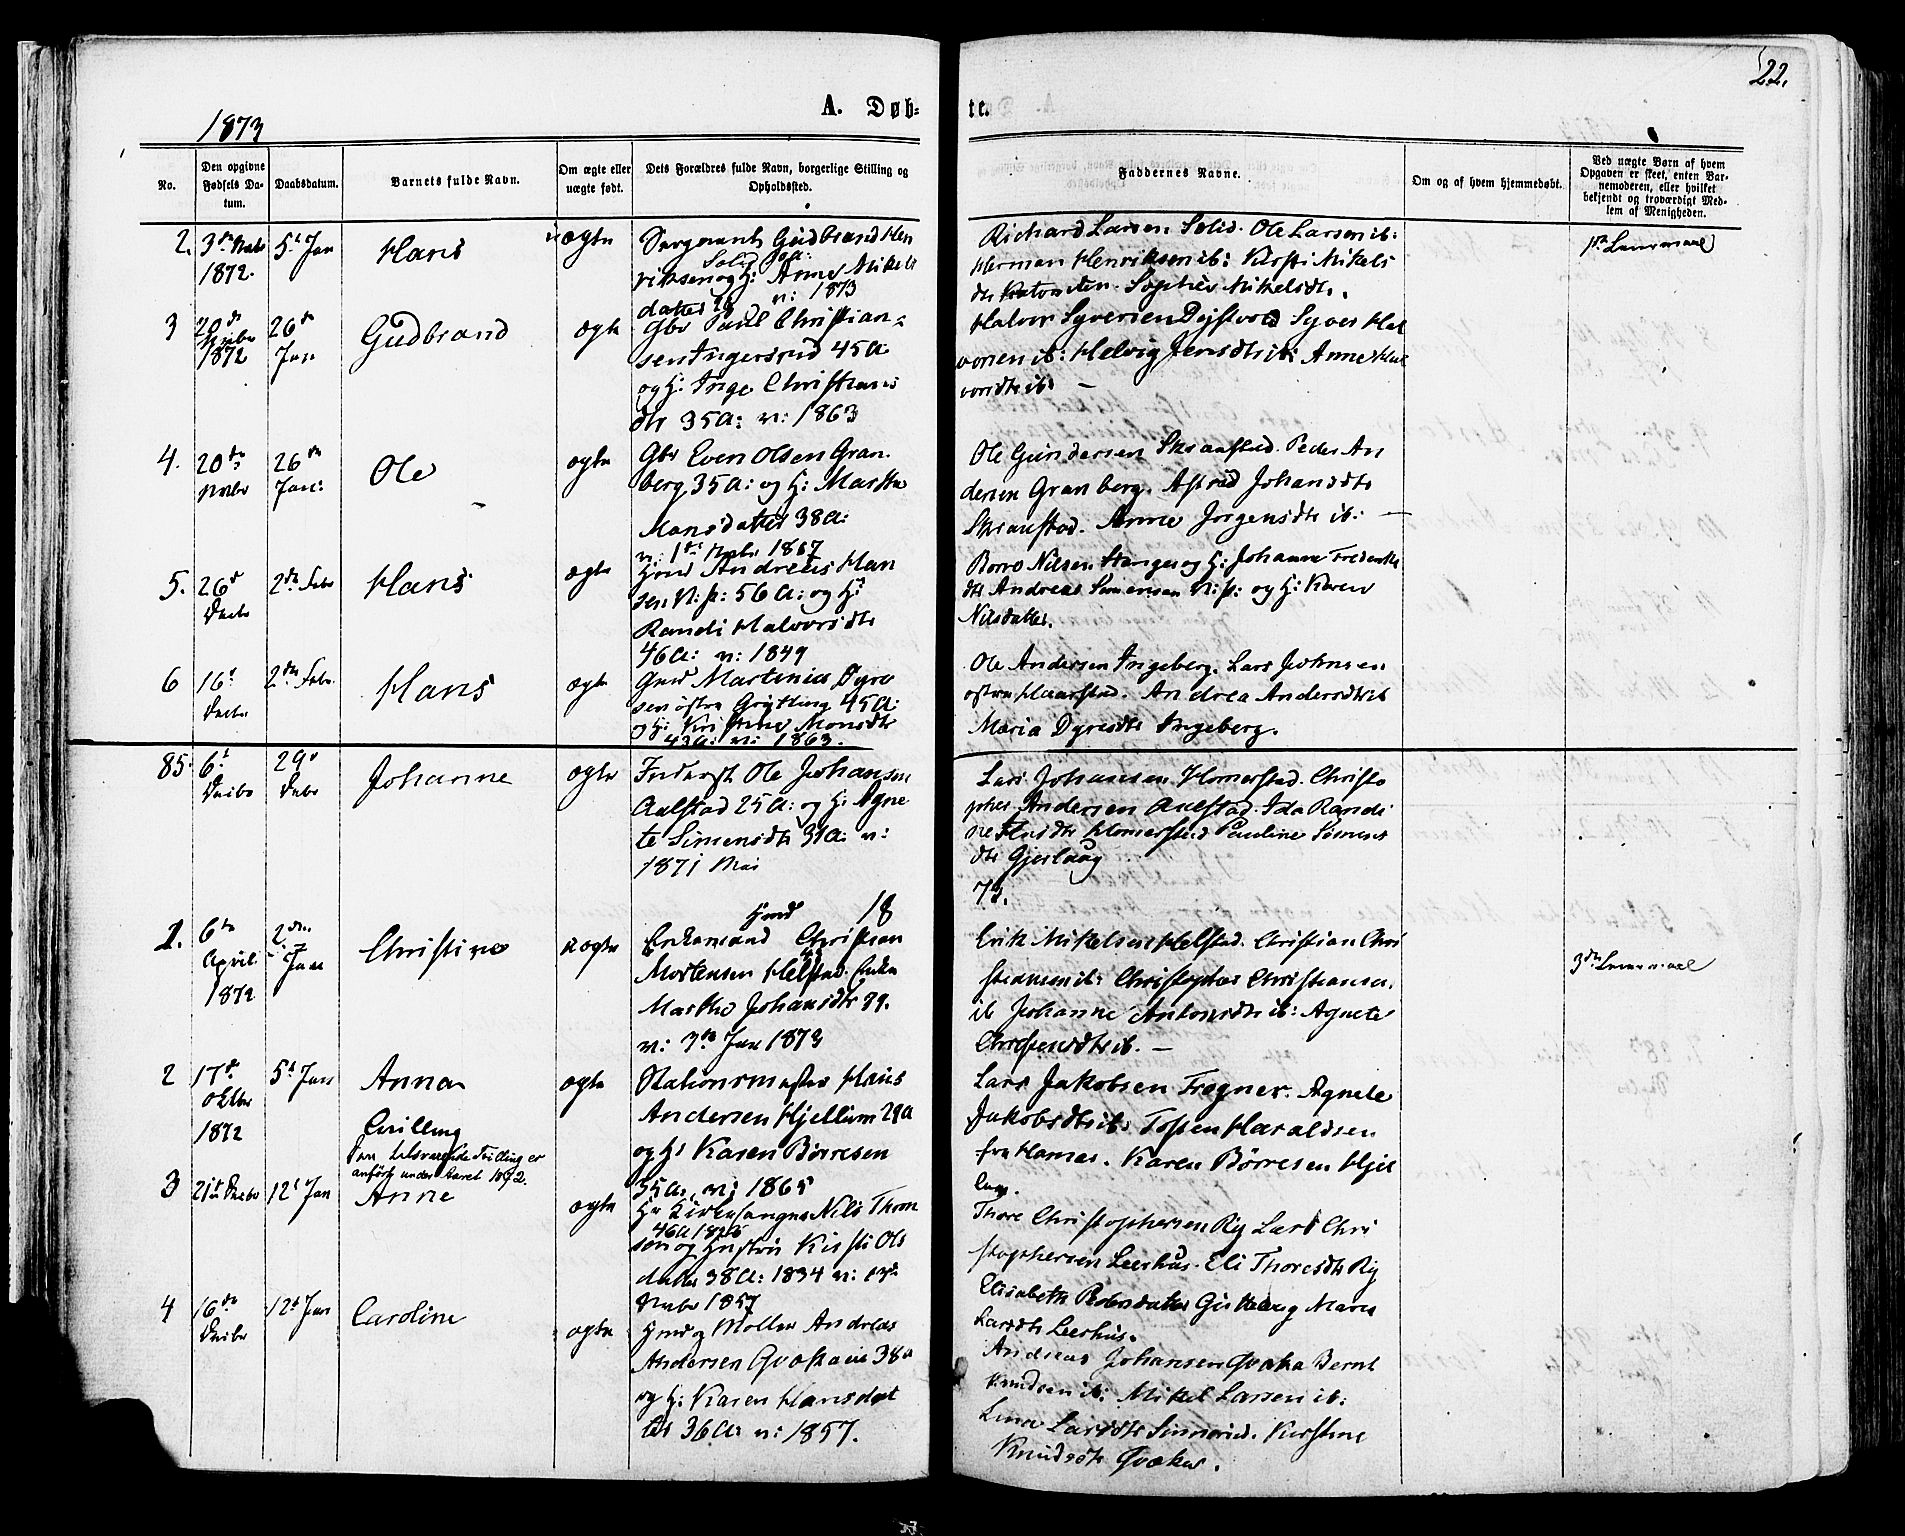 22.
A. Døb-
te.
1873
No.
Den opgivne Fødsels Datum.
Daabsdatum.
Barnets fulde Navn.
Om ægte eller uægte født.
Dets Forældres fulde Navn, borgerlige Stilling og Opholdssted.
Faddernes Navne.
Om og af hvem hjemmedøbt.
Ved uægte Børn af hvem Opgaven er skeet, enten Barnemoderen, eller hvilket bekjendt og troværdigt Medlem af Menigheden.
2.
1872.
5t Jan
Hans
uægte
Sergeant Gudbrand Hen
riksen og H: Anne Mikels
datter 26 v: 1873
Richard Larsen Solid. Ole Larsen ib:
Herman Henriksen ib: Kirsti Mikels
Sophie Mikelsdtr.
Leiermaal
3
20de
1872
26de
Jan
Gudbrand
ægte
Gbr Paul Christian-
sen Ingersrud 45A
og H: Inge Christians
dtr 35A: v: 1863
Halvor Syversen Syver Hal
vorsen ib: Helvig Jensdtr ib: Anne Hal
vorsdtr ib
4.
20de
Novbr
26de
Jan:
Ole
ægte
Gbr Even Olsen Gran
berg 35A: og H: Marthe
Mansdatter 38A:
v: 1ste Novbr 1867
Ole Gundersen Skraastad. Peder An
dersen Granberg. Astrid Johansdtr
Skraastad. Anne Jørgensdtr ib:
5.
26de
Decbr
2den Febr
Hans
ægte
Hmd Andreas Han
sen 56A: og H:
Randi Halvorsdtr
46A: v: 1849
Nilsen og H: Johanne
dtr Andreas og H: Karen
Nilsdatter.
6
16de
Decbr
2den Febr.
Hans
ægte
Martinius Dyre
sen østre Grytting 45A:
og H: Monsdtr
43A: v: 1863.
Ole Andersen Ingeberg. Lars Johnsen
østre Haarstad. Andrea Andersdtr ib
Maria Dyresdtr Ingeberg.
85
6t
Decbr
29de
Decbr
Johanne
ægte
Inderst Ole Johansen
Aalstad 25A: og H: Agne
te Simensdtr 31A: v:
1871 Mai
Lars Johansen Homerstad. Christo
pher Andersen Aalstad. Ida Randi
Homerstad Pauline Simens
dtr Gjerlaug
18
73.
1.
6te
April
1872
2den
Jan
Christine
uægte
Enkemand Hmd Christian
Mortensen Helstad. Enke
Marthe Johansdtr 39.
v: 7de Jan 1873
Erik Mikelsen Helstad. Christian Chri
stiansen ib: Christopher Christiansen
ib Johanne Antonsdtr ib: Agnete
Christensdtr ib.
3die Leiermaal
2
17de
Oktbr
1872
5t Jan
Anna
Tvilling
Den tilsvarende Tvilling er
anført under Aaret 1872.
ægte
Stationsmester Hans
Andersen Hjellum 29A
og H: Karen Børresen
35A: v: 1865
Lars Jakobsen Fregner. Agnete
Jakobsdtr ib: Tosten Haraldsen
fra Hamar. Karen Børresen Hjel
lum.
3
21de Decbr
12t Jan
Anne
ægte
Hr Kirkesanger Nils Thom
46A 1826
sen og Hustru Kirsti Ols
datter 38A: 1834 v: 13de
Novbr 1857
Thore Christophersen Ry Lars Chri
stophersen Leerhus. Eli Thoresdtr Ry
Elisabeth Pedersdatter Maren
Larsdtr Leerhus.
4
16de
Decbr
12t Jan
Caroline
ægte
Hmd og Møller Andreas
Andersen Qvakaie 38A
og H: Karen Hansdat
ter 36A: v: 1857.
Andreas Johansen Qvaka Bernt
Knudsen ib: Mikel Larsen ib:
Lina Larsdtr Kirstine
Knudsdtr